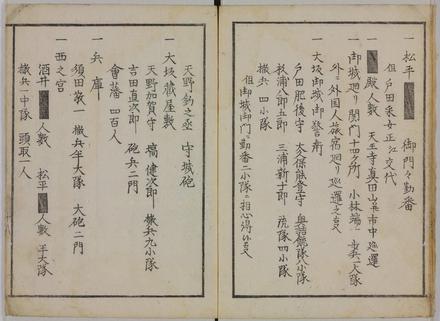 一 松平 御門々勤番
但戸田采女正江交代
一 殿人数 天王寺真田山并市中巡邏
一 御城廻り関門十四ケ所 小林端一 歩兵一大隊
外ニ外国人旅宿廻り巡邏
一 大坂御城御警衛
戸田肥後守 大久保能登守 奥詰銃隊八小隊
杉浦八郎五郎 三浦新十郎 隊四小隊
撒兵 四小隊
但御城御門々勤番二小隊ニ相心得
天野釣之丞 守城砲
一 大坂蔵屋敷
天野加賀守 塙健次郎 撒兵九小隊
吉田直次郎 砲兵二門
會藩 四百人
一 兵庫
須田敬一 撒兵半大隊 大砲二門
一 西之宮
酒井 人數 松平 人數 半大隊
撒兵一中隊 頭取一人